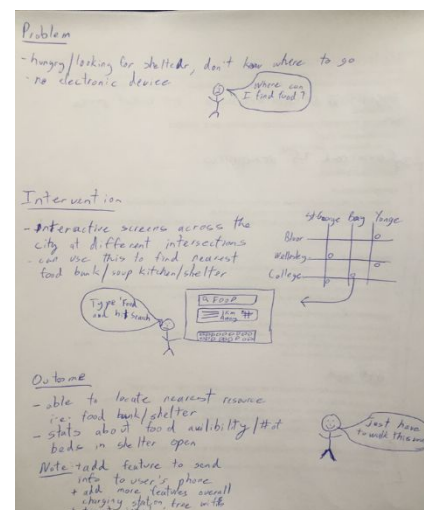 Problem
- hungry/looking for shelter, don't know where to go
- no electronic device
Where can
I find food?
Intervention
- interactive screens across the
city at different intersections
- can use this to find nearest
food bank/soup kitchen/shelter
St George Bay Yonge
Bloor
Wellesley
College
Type 'food'
and hit search
FOOD
Outcome
- able to locate nearest resource
i.e. food bank/shelter
- stats about food availibility/# of
beds in shelter open
Just have
to walk this way
Note: + add feature to send
info to user's phone
+ add more features overall
charging station, free wifi